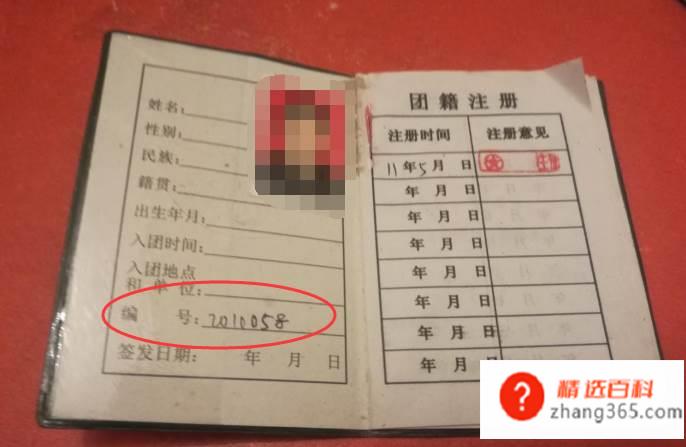 姓名:
性别:
民族:
籍贯:
出生年月:
入团时间:
入团地点
和 单 位:
编 号: 2010058
签发日期: 年 月 日
团籍注册
注册时间 注册意见
11年5月 日 注册
年 月 日
年 月 日
年 月 日
年 月 日
年 月 日
年 月 日
年 月 日
? 精选百科
zhang365.com